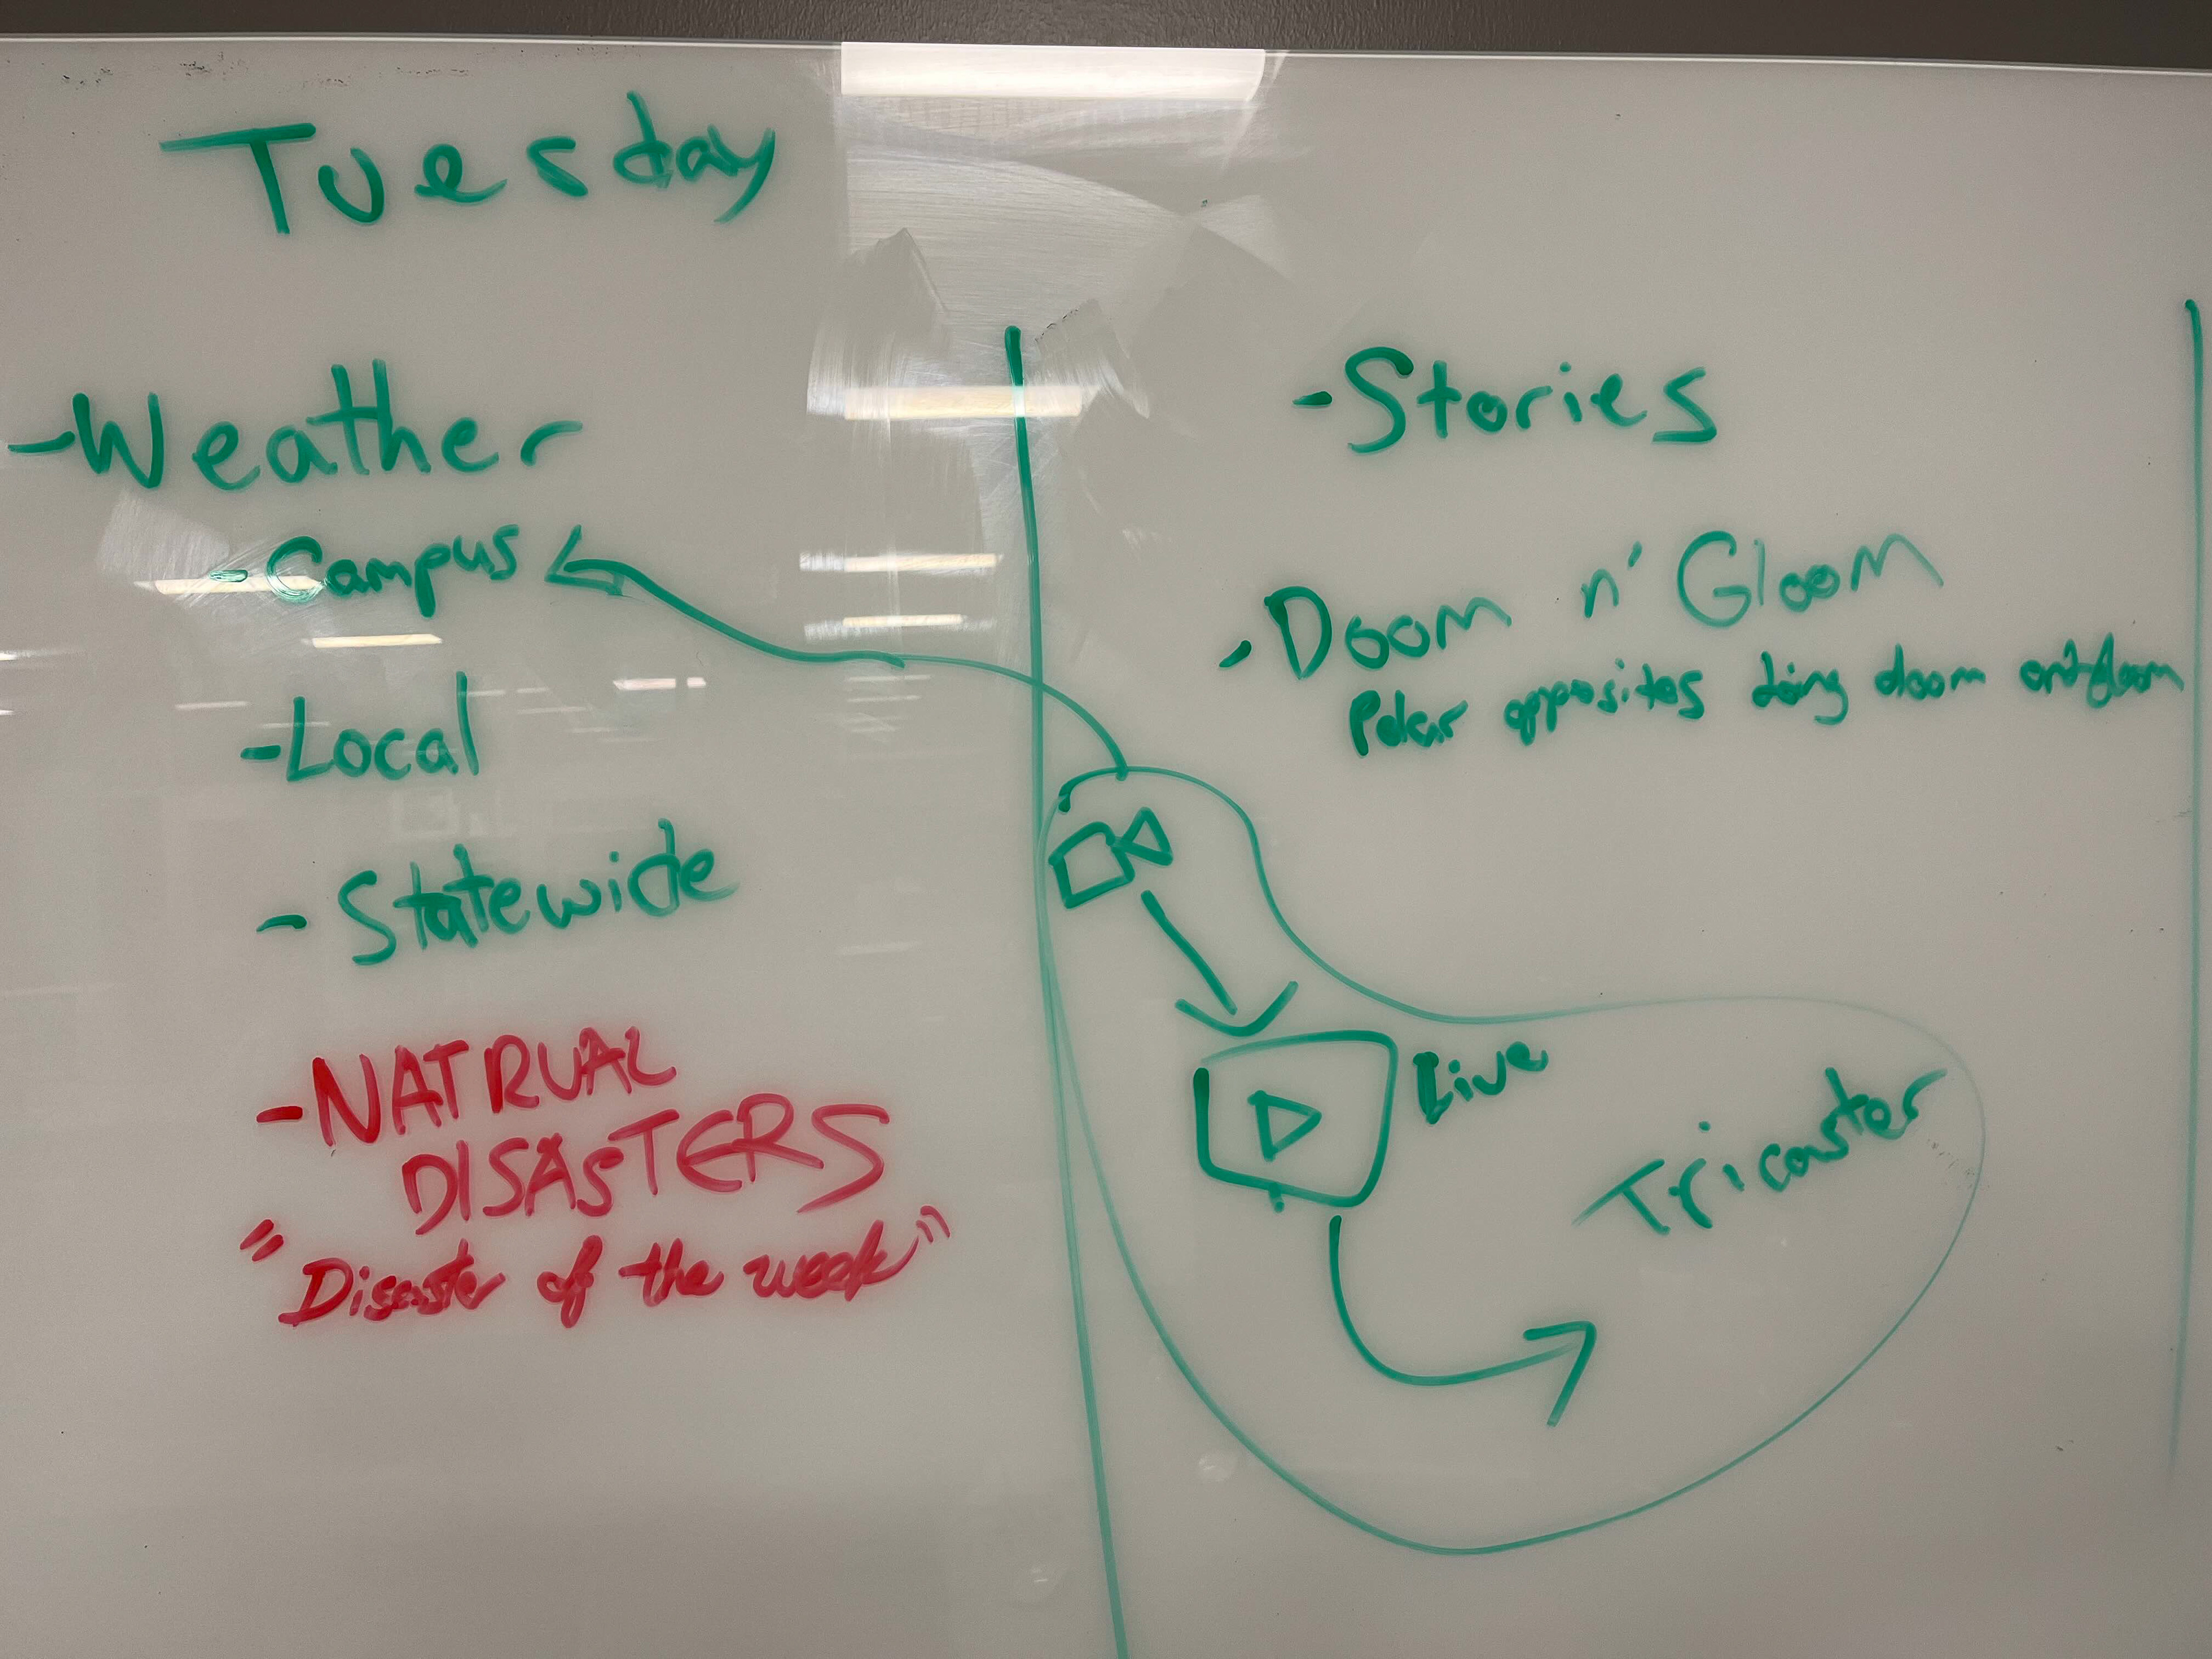 Tuesday
-Weather
-Campus
-Local
-Statewide
-NATRUAL
DISASTERS
"Disaster of the week"
-Stories
-Doom n' Gloom
Polar opposites doing doom and gloom
Live
Tricaster